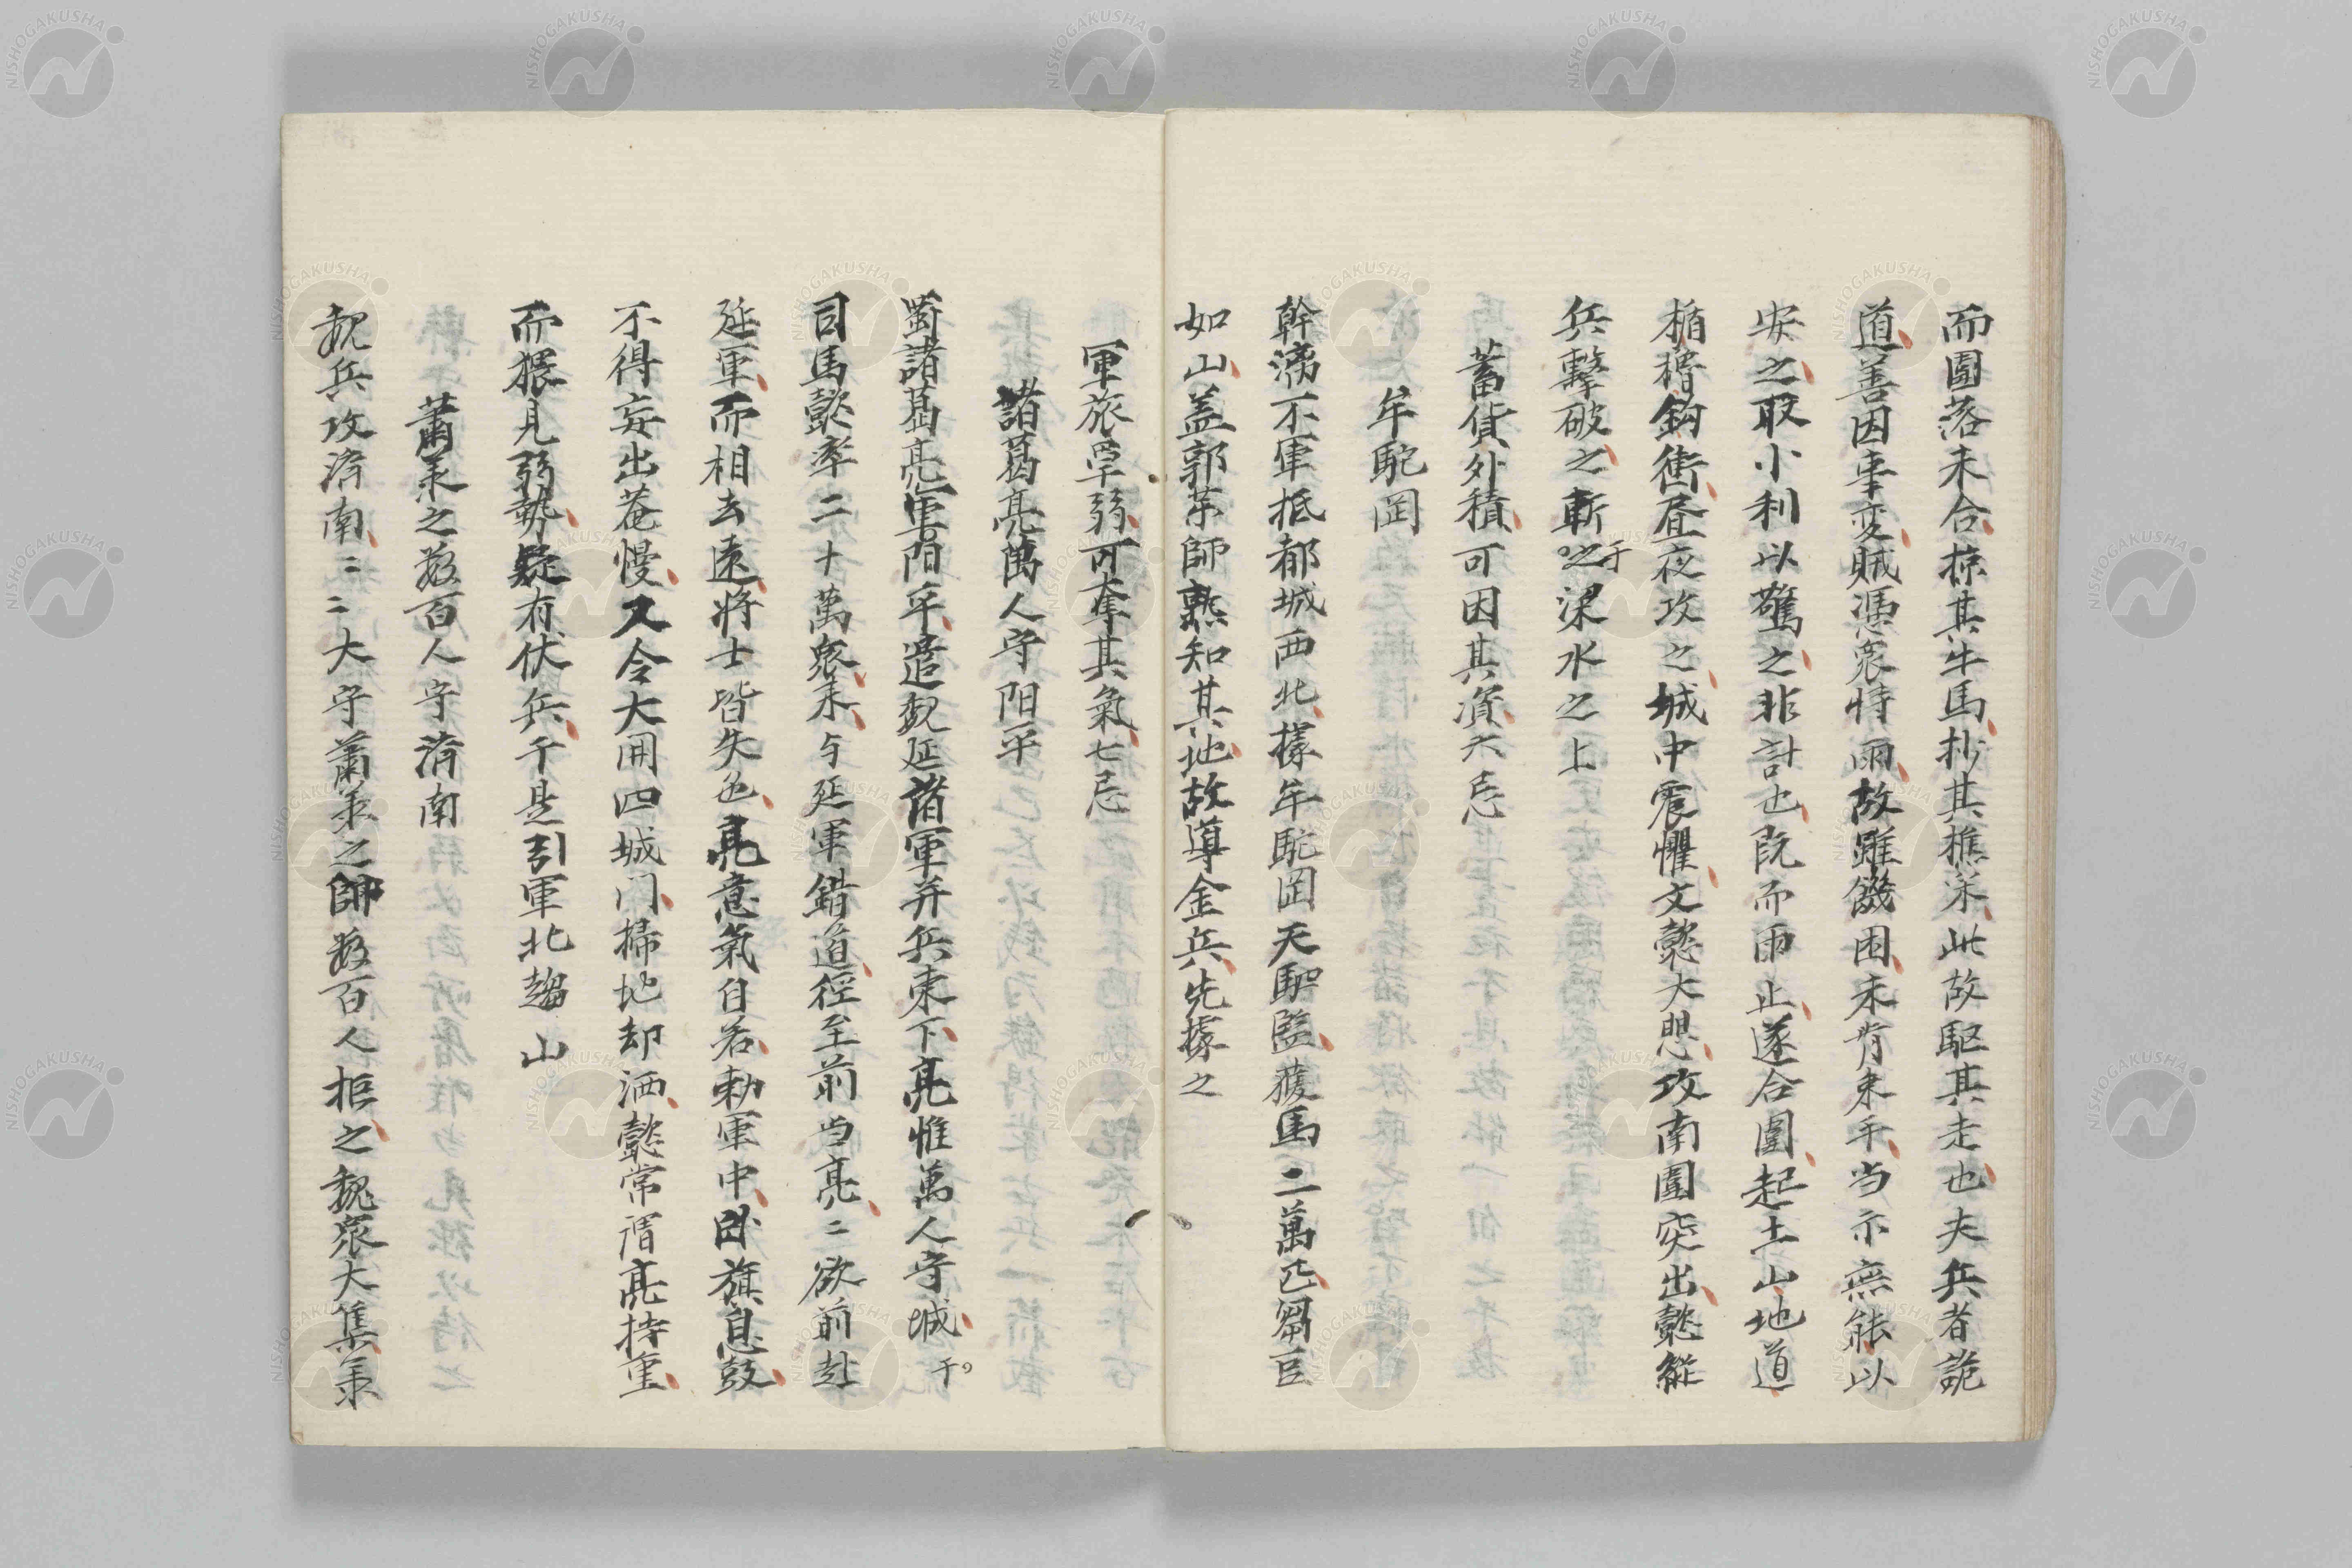 而圍落未合掠其牛馬抄其樵采此故駆其走也夫兵者詭
道善因事変賊憑衆恃雨故雖饑困未肯束手当示無能以
安之取小利以驚之非計也既而雨止遂合圍起土山地道
楯櫓鈎衝昼夜攻之城中震懼文懿大恐攻南圍突出懿縦
兵撃破之斬之于梁水之上
蓄貨外積可因其資六忌
牟駝岡
幹湧不軍抵都城西北據牟駝岡天駟監獲馬二萬匹芻豆
如山盖郭薬師熟知其地故導金兵先據之
軍旅單弱可奪其氣七忌
諸葛亮萬人守陽平
蜀諸葛亮軍陽平遣魏延諸軍并兵東下亮惟萬人守城于
司馬懿率二十萬衆来与延軍錯道徑至前当亮ニ欲前赴
延軍而相去遠将士皆失色亮意氣自若勅軍中臥旗息鼓
不得妄出菴幔又令大開四城门掃地却洒懿常谓亮持重
而猥見弱勢疑有伏兵于是引軍北趨山
蕭承之数百人守済南
魏兵攻済南ニニ大守蕭承之帥数百人拒之魏衆大集承
NISHOGAKUSHA